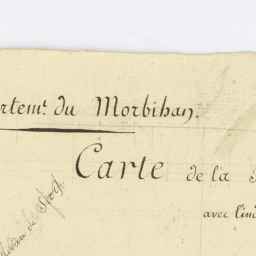 rtemt. du Morbihan.
Carte de la
avec l'in